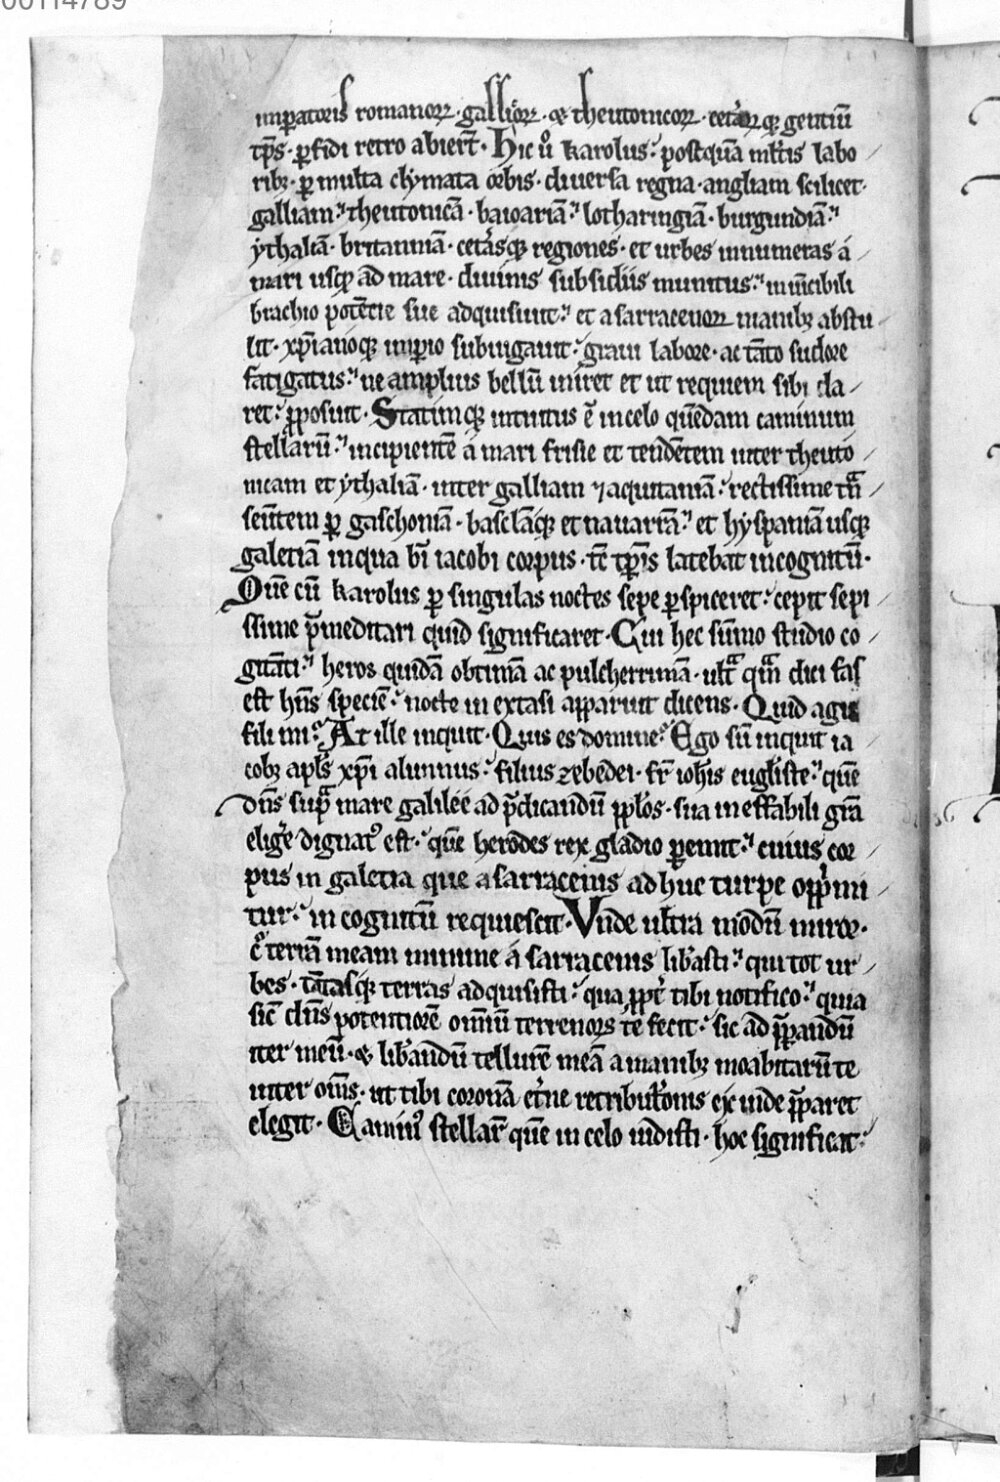 00114789
imꝑatoris romanoꝝ · galliꝯoꝝ · ⁊ theutonicoꝝ · cet̾aꝝ qꝫ gentiū
tp̄s · ꝑfidi retro abier̄t · Hic ů karolus · postquā ml̄tis labo
ribꝫ · ꝑ multa clymata orbis · diuersa regna · angliam scilicet ·
galliam · theutonicā · baioariā · lotharingiā · burgundiā ·
ẏthaliā · britanniā · cet̾asqꝫ regiones · et urbes innumeras á
mari usqꝫ ad mare · diuinis subsidiis munitus · inuīcibili
brachio potētie sue adquisiuit · et a sarracenoꝝ manibꝫ abstu
lit · xp̄ianoqꝫ imꝑio subiugauit · graui labore · ac tāto sudore
fatigatus · ne amplius bellū iniret et ut requiem sibi da
ret · ꝓposuit · Statimqꝫ intuitus ē in celo quēdam caminum
stellarū · incipientē á mari frisie et tendētem inter theuto
nicam et ẏthaliā · inter galliam ⁊ aquitaniā · rectissime trā
seūtem ꝑ gaschoniā · basclāqꝫ et nauarrā · et hẏspaniā usqꝫ
galeciā in qua bī iacobi corpus · tē tꝑis latebat incognitū ·
Quē cū karolus ꝑ singulas noctes sepe ꝑspiceret · cepit sepi
ssime p̄meditari quid significaret · Cui hec sūmo studio co
gitāti · heros quidā obtimā ac pulcherrimā · ultᷓ quā dici fas
est hn̄s speciē · nocte in extasi apparuit dicens · Quid agis
fili mi · At ille inquit · Quis es domine · Ego sū inquit ia
cobꝫ apl̄s xp̄i alumnus · filius zebedei · fr̄ ioh̄is eugl̄iste · quē
dn̄s supᷓ mare galilee ad p̄dicandū ppl̄os · sua ineffabili grā
elig̾e dignatꝰ est · quē herodes rex gladio ꝑemit · cuius cor
pus in galecia que a sarracenis ad huc turpe oppͥmi
tur · in cognitū requiescit · Vnde ultra modū miror ·
cͦ terrā meam minime á sarracenis lib̾asti · qui tot ur
bes · tātasqꝫ terras adquisisti · qua ꝓpt̾ tibi notifico · quia
sic̄ dn̄s potentiorē om̄iū terrenoꝝ te fecit · sic ad p̄ꝑandū
iter meū · ⁊ lib̾andū tellurē meā a manibꝫ moabitarū te
inter om̄s · ut tibi coronā et̾ne retributͦonis ex inde p̄ꝑaret
elegit · Caminꝰ stellar̄ quē in celo uidisti · hoc significat ·